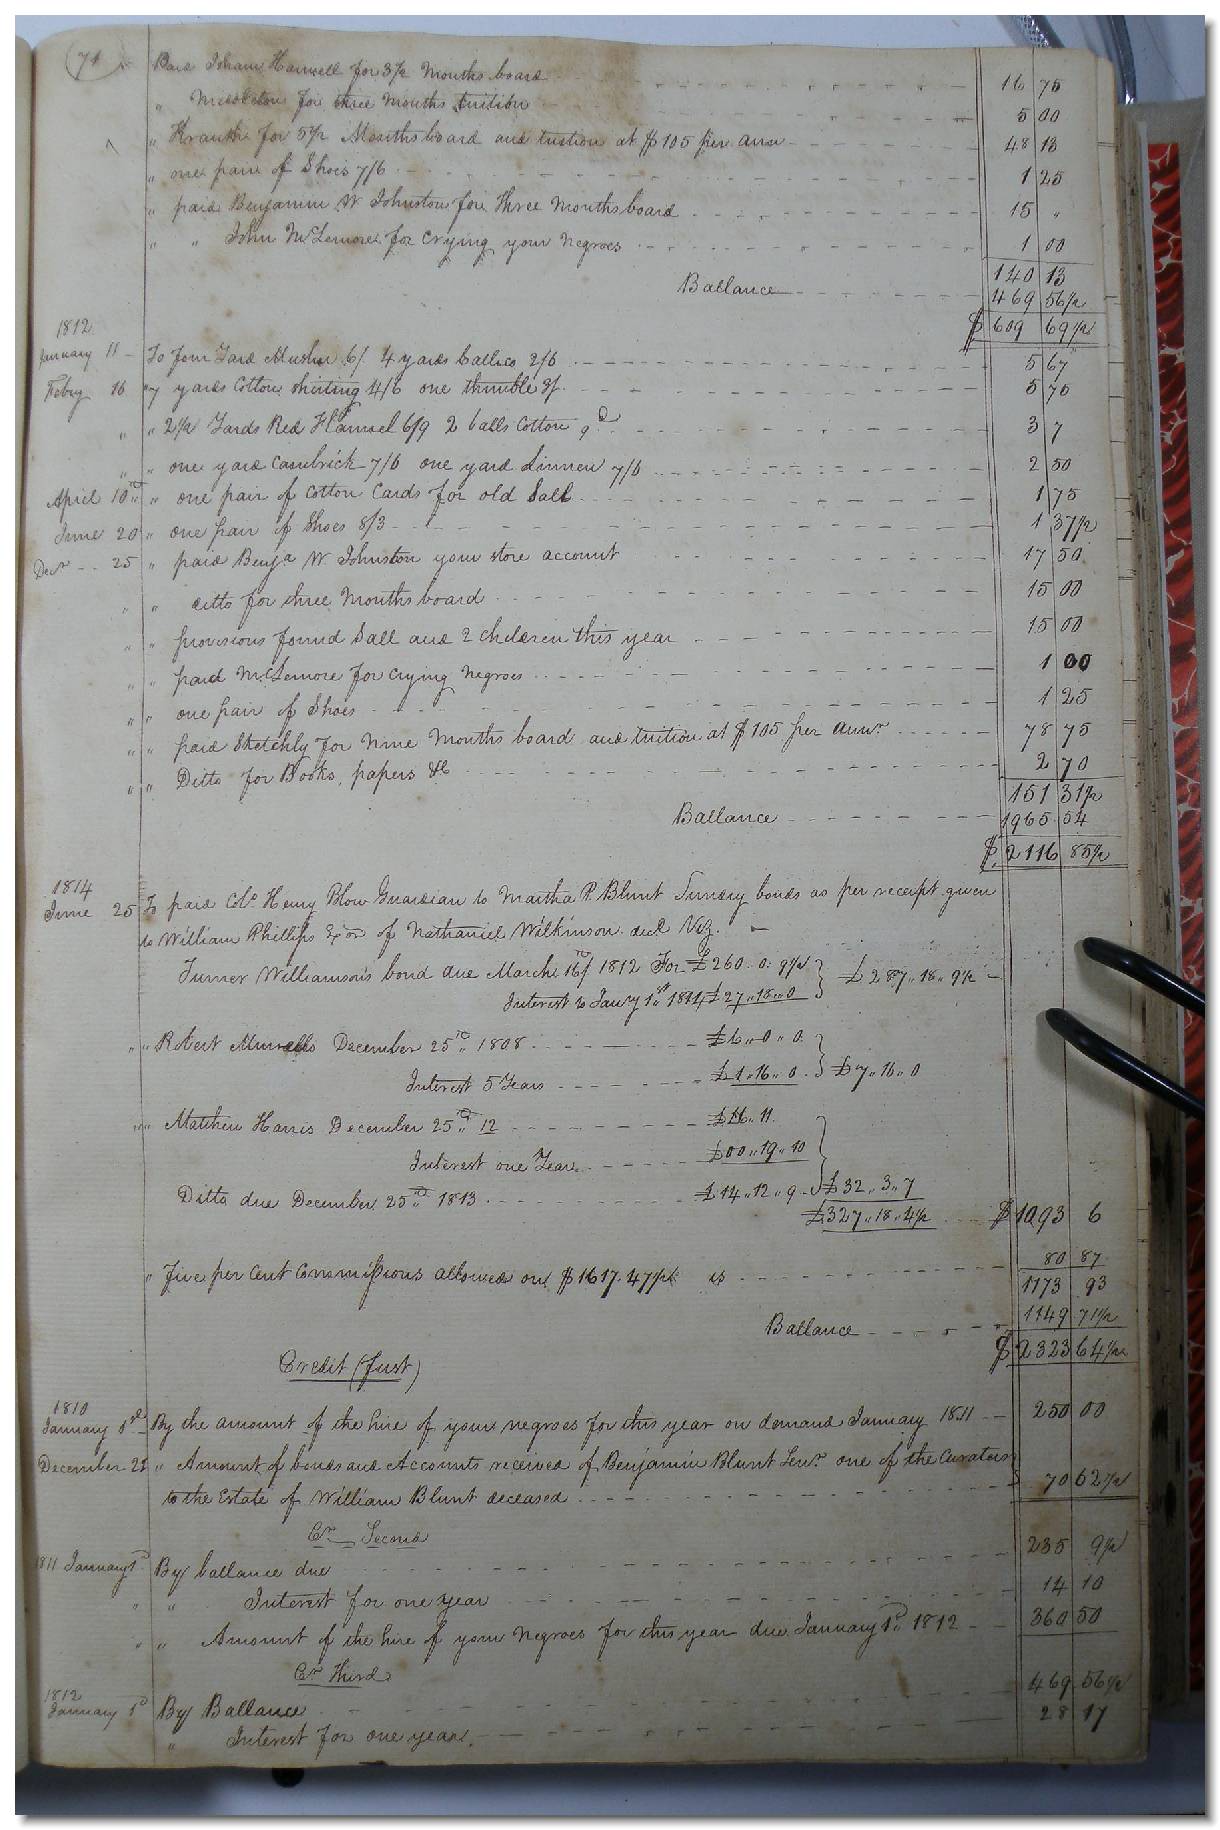 71
Paid Hanwell for 3½ Months board 16 75
" Middleton for three Months tuition 5 00
" Krauth for 5½ Months board and tuition at $105 per ann 48 13
" one pair of Shoes 7/6 1 25
" paid Benjamin W Johnston for three Months board 15 "
" " John McLemore for Crying your negroes 1 00
140 13
Ballance 469 56½
$ 609 69½
1812
January 11 To four Yard Muslin 6/ 4 yards Callico 2/6 5 67
Febry 16 " 7 yards Cotton shirting 4/6 one thimble 5 70
" " 2½ Yards Red Flannel 6/9 2 balls Cotton 9d 3 7
" " one yard Cambrick 7/6 one yard Linnen 7/6 2 50
April 10th " one pair of Cotton Cards for old Sall 1 75
June 20 " one pair of Shoes 8/3 1 37½
Decr 25 " paid Benja W Johnston your store account 17 50
" " ditto for three Months board 15 00
" " provisions found Sall and 2 children this year 15 00
" " paid McLemore for Crying negroes 1 00
" " one pair of Shoes 1 25
" " paid Sketchly for Nine Months board and tuition at $105 per annr 78 75
" " Ditto for Books, papers &c 2 70
151 31½
Ballance 1965 54
$ 2116 85½
1814
June 25 To paid Colo Henry Blow Guardian to Martha P. Blunt Sundry bonds as per receipt given
to William Phillips Exor of Nathaniel Wilkinson decd Viz.
Turner Williamson's bond due March 16th 1812 For £260 .. 0 .. 9½ } £287 .. 18 .. 9½
Interest to Jany 1st 1814 £27 .. 18 .. 0
" " Robert Murrells December 25th 1808 £6 .. 0 .. 0
Interest 5 Years £1 .. 16 .. 0 } £7 .. 16 .. 0
" " Matthew Harris December 25th 12 £16 .. 11
Interest one Year £00 .. 19 .. 10
Ditto due December 25th 1813 £14 .. 12 .. 9 } £32 .. 3 .. 7
£327 .. 18 .. 4½ $1093 6
" Five per Cent Commissions allowed on $1617.47½ is 80 87
1173 93
Ballance 1149 71½
$ 2323 64½
Credit (first)
1810
January 1st By the amount of the hire of your negroes for this year on demand January 1811 250 00
December 21 " Amount of bonds and Accounts received of Benjamin Blunt Senr one of the Curators
to the Estate of William Blunt deceased 70 62½
Cr Second
1811 January 1st By ballance due 235 9½
" " Interest for one year 14 10
" " Amount of the hire of your Negroes for this year due January 1st 1812 360 50
Cr Third
1812
January 1st By Ballance 469 56½
" Interest for one year 28 17